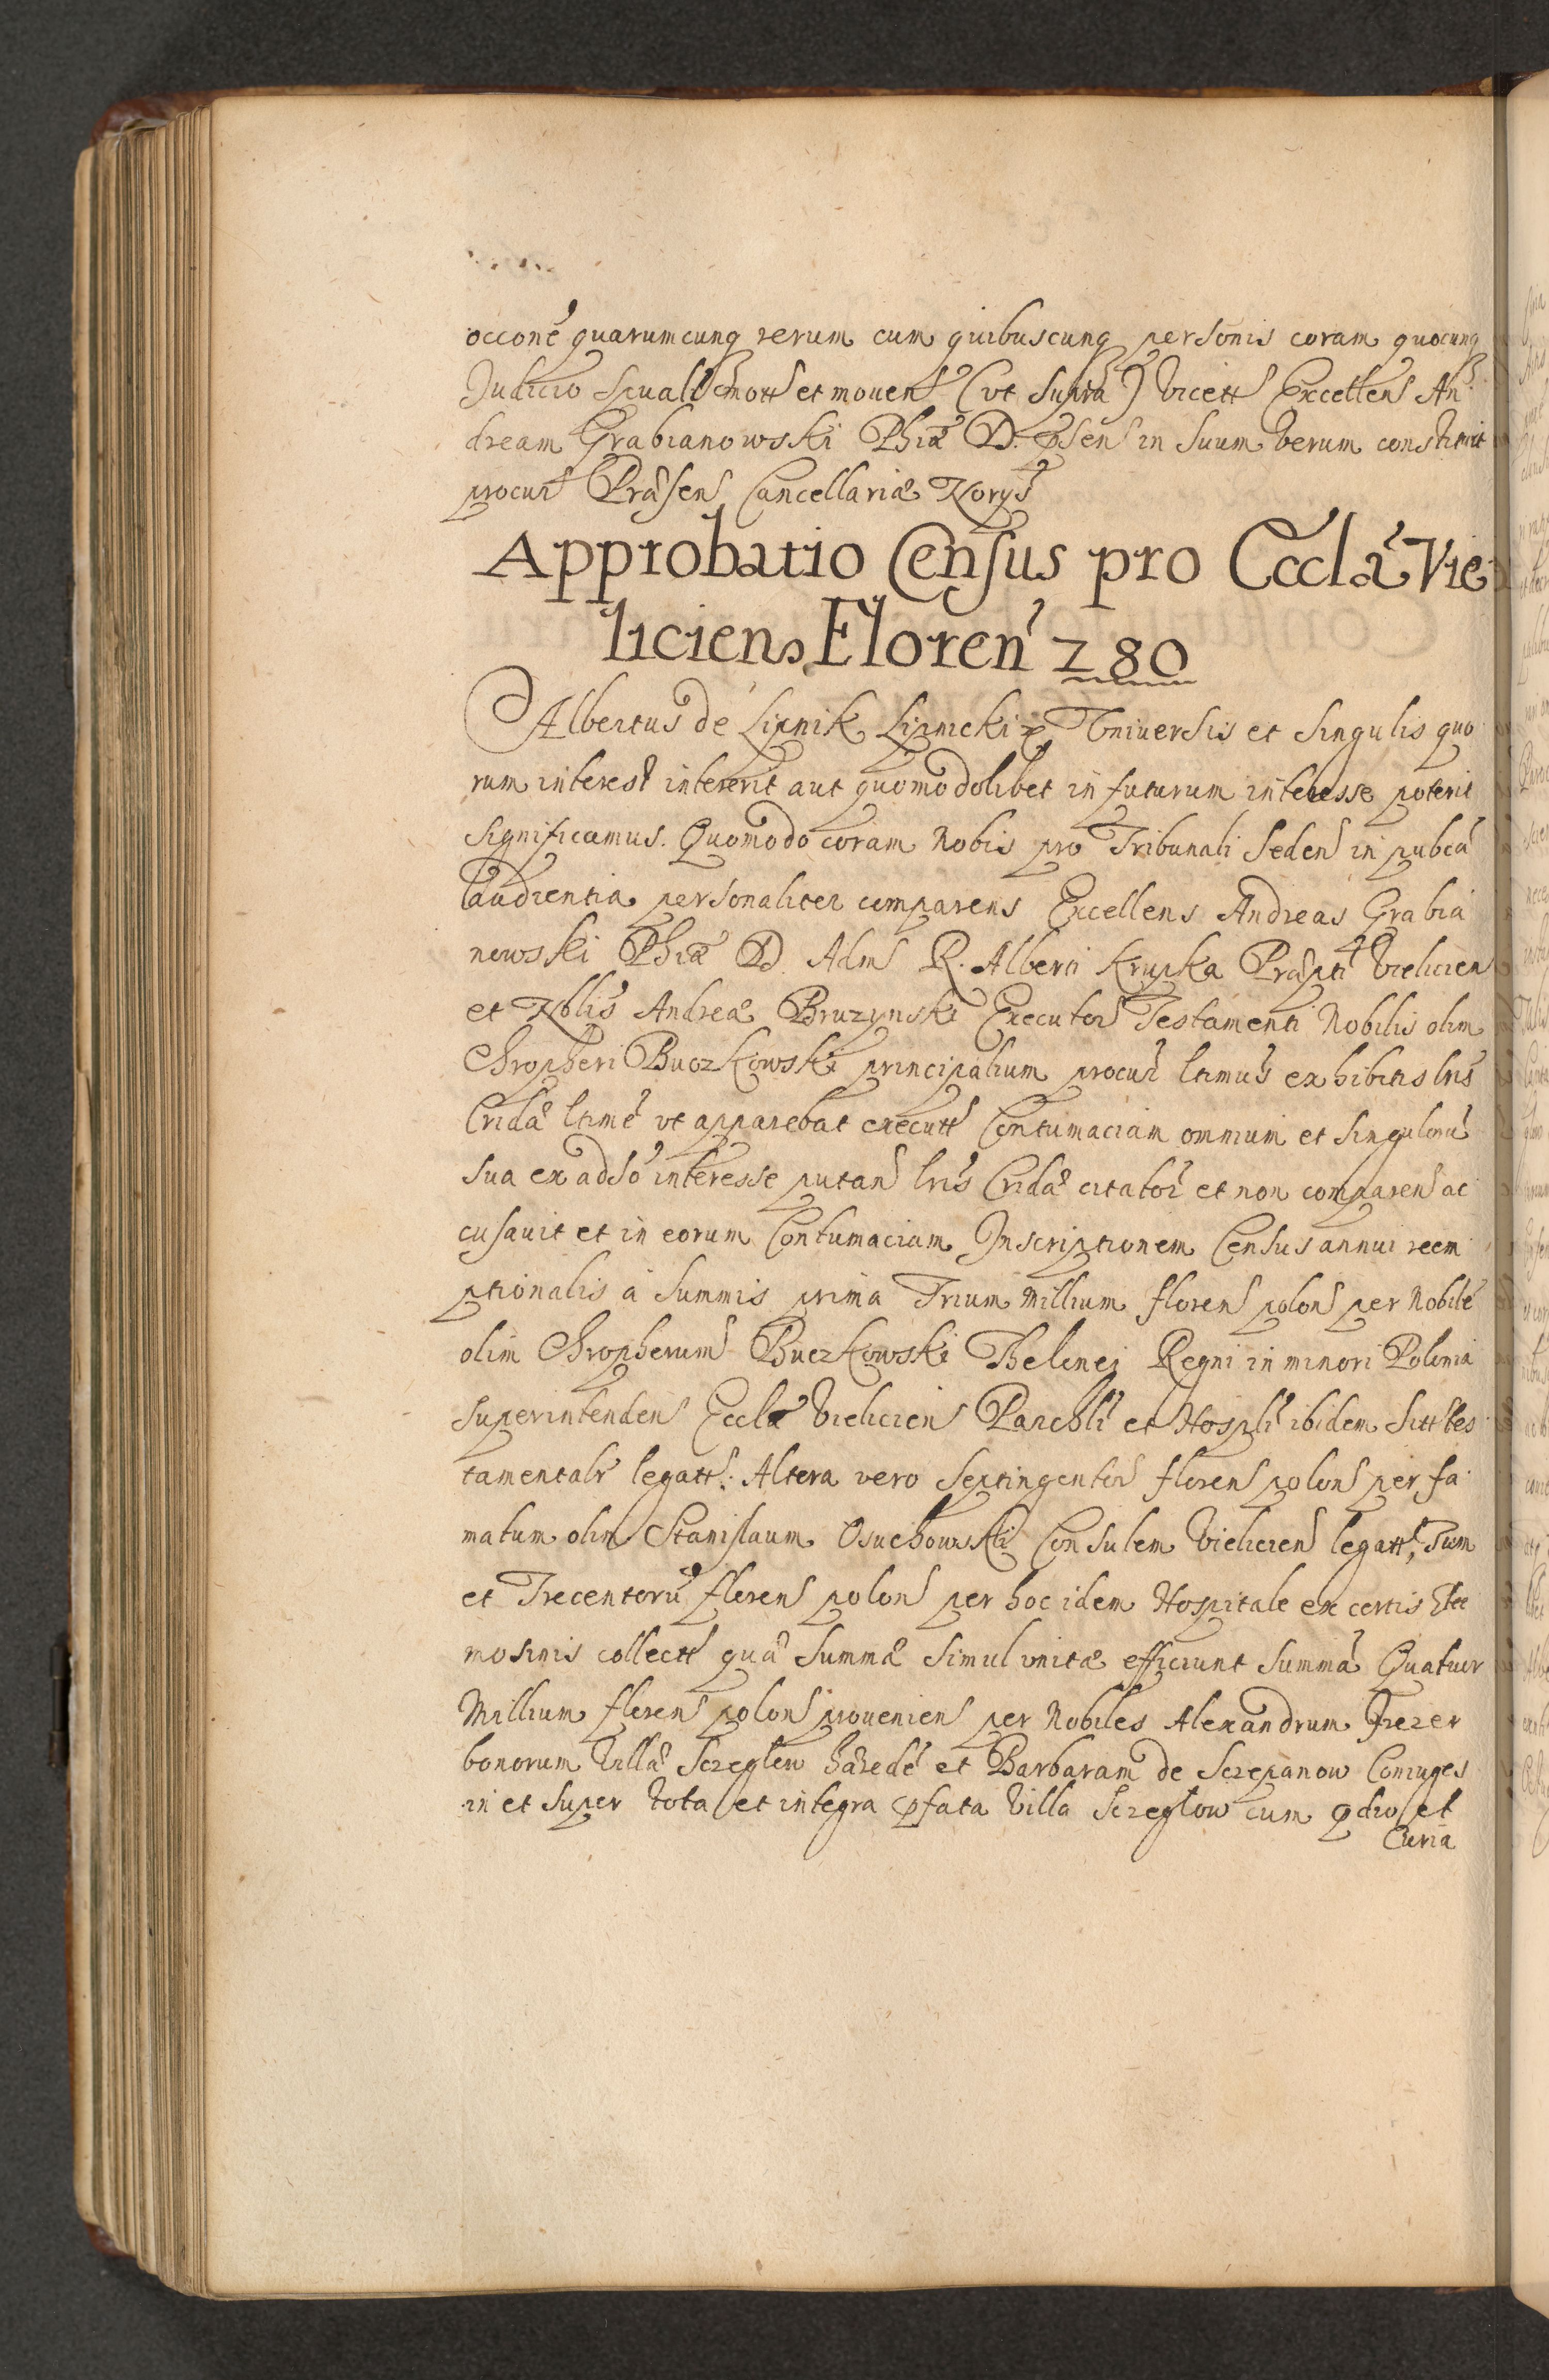 occone quarumcunq rerum cum quibuscunq personis coram quocunq
Judicio Spuali mott et mouen (ut supra) Vicett Excellens An
dream Grabianowski Phiæ D. psen in suum verum constituit
procur Præsen Cancellariæ Norys
Approbatio Census pro Eccla Vie
licien, Floren 280
Albertus de Lipnik Lipnicki Universis et singulis quo
rum interest intererit aut quomodolibet in futurum interesse poterit
significamus. Quomodo coram Nobis pro Tribunali seden in pubca
audientia personaliter comparens Excellens Andreas Grabia
nowski Phiæ D. Adm R. Alberti Krupka Præpti Vielicien
et Nblis Andreæ Bruzynski Executor Testamenti Nobilis olim
Chropheri Buczkowski principalium procur ltimus exhibitis lris
Cridæ ltime ut apparebat executt Contumaciam omnium et singuloru
sua ex adso interesse putan lris Cridæ citator et non comparen ac
cusauit et in eorum Contumaciam Inscriptionem Census annui reem
ptionalis a summis prima Trium millium floren polon per Nobile
olim Chropherum Buczkowski Thelonei Regni in minori Polonia
superintenden Eccla Vielicien Parchli et Hospli ibidem sitt tes
tamentalr legatt. Altera vero septingentor floren polon per fa
matum olim Stanislaum Osuchowski Consulem Vielicien legatt, Tum
et Trecentoru floren polon per hoc idem Hospitale ex certis Elee
mosinis collectt quæ summæ simul unitæ efficiunt summa Quatuor
Millium floren polon prouenien per Nobiles Alexandrum Trezer
bonorum Villæ Sczeglow hærede et Barbaram de Sczepanow Coniuges
in et super tota et integra pfata Villa Sczeglow cum pdio et
Curia